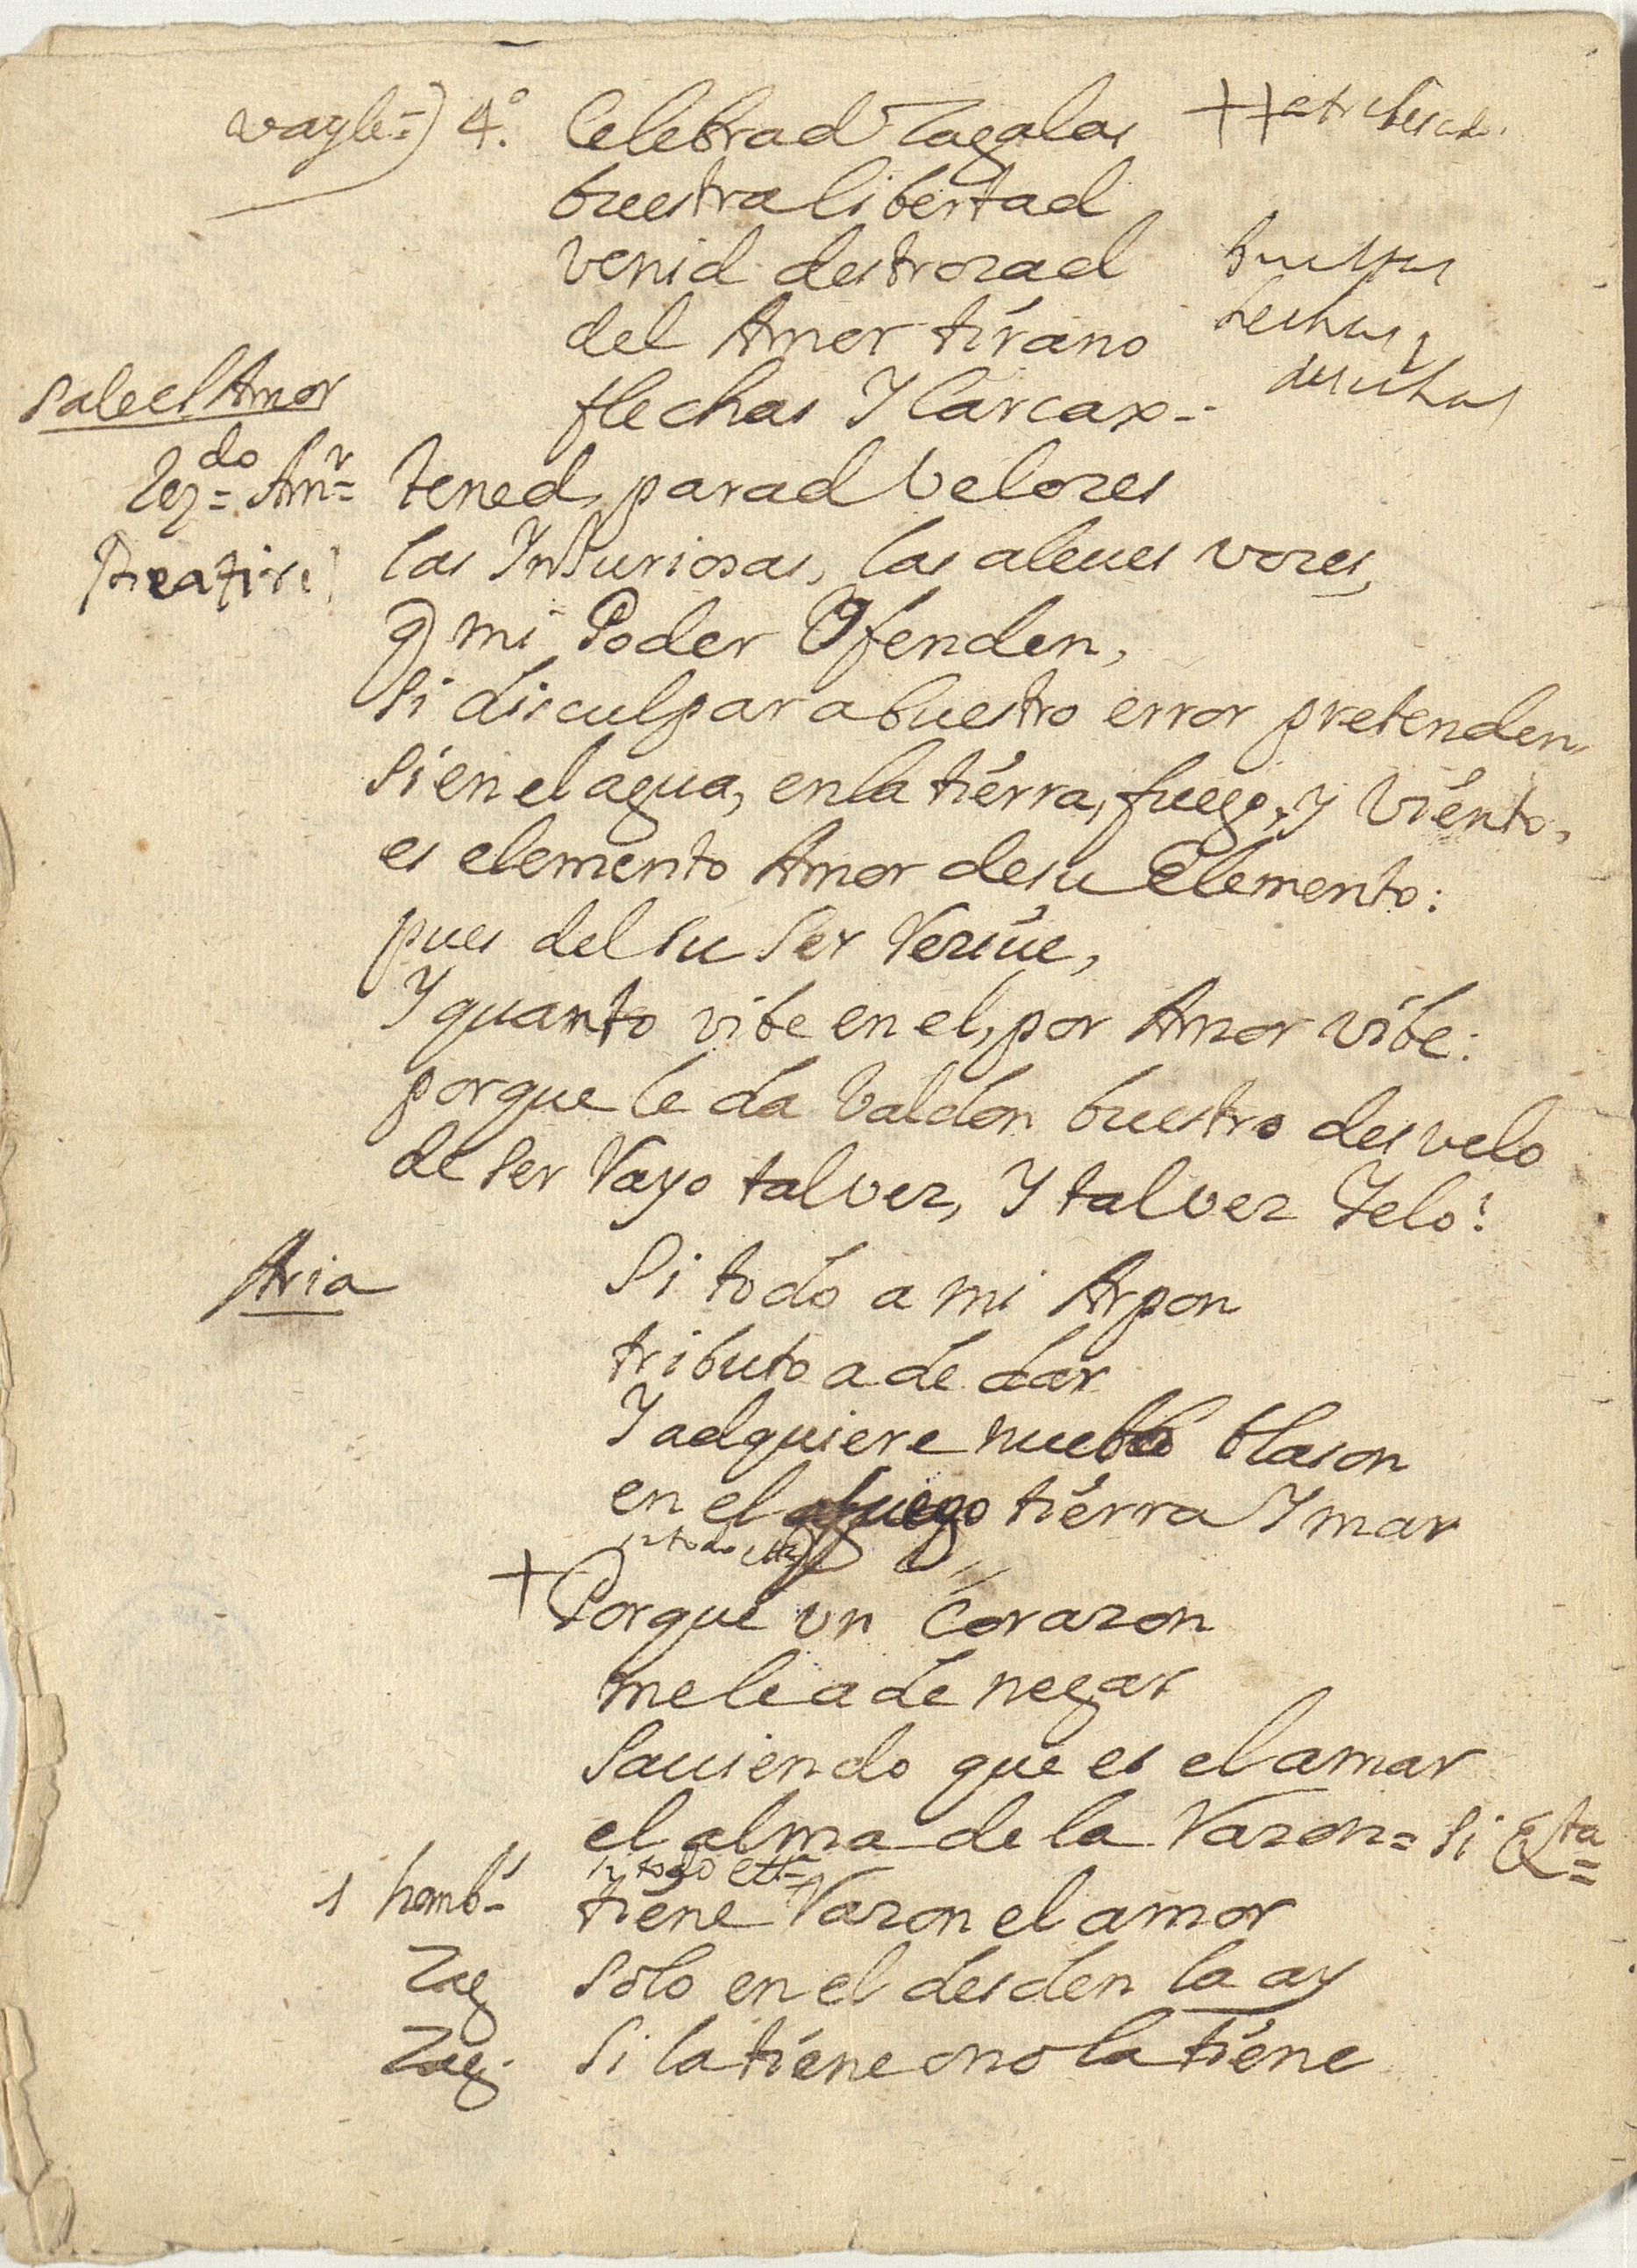 vayle=) 4.º Celebrad Zagalas
buestra libertad
venid destrozad
del Amor tirano
flechas Y Carcax=
Sale el Amor
Rez.do= Am.r= tened, parad Veloces
las Inxuriosas, las aleues vozes,
q mi Poder Ofenden,
Si disculpar a buestro error pretenden
Si en el agua, en la tierra, fuego, y Viento,
es elemento Amor de su Elemento:
pues del su Ser Reciue,
Y quanto vibe en el, por Amor vibe:
porque le da Valdon buestro desvelo
de Ser Rayo tal vez, Y tal vez Yelo!
Aria Si todo a mi Arpon
tributo a de dar
Y adquiere nuebo blason
en el fuego tierra Y mar
+ Porque un Corazon
me le a de negar
Sauiendo que es el amar
el alma de la Razon= Si Etta=
si todo etta=
1 homb.s tiene Razon el amor
Zag Solo en el desden la ay
Zag. Si la tiene o no la tiene